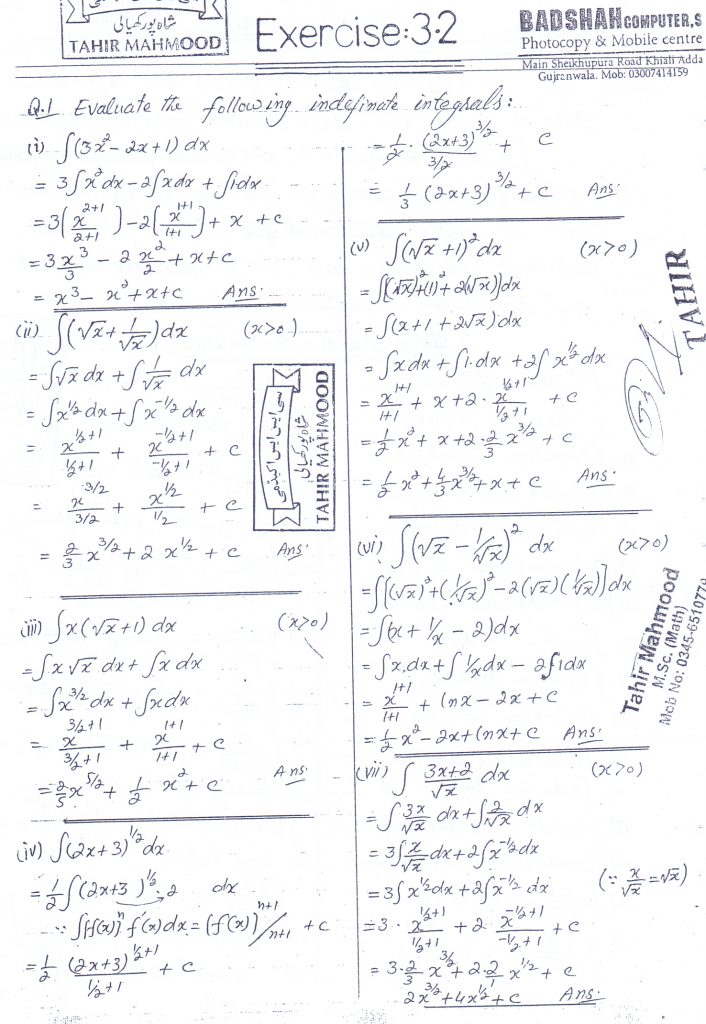 شاہ پور کھیالی
TAHIR MAHMOOD
Exercise:3.2
BADSHAH COMPUTER,S
Photocopy & Mobile centre
Main Sheikhupura Road Khiali Adda
Gujranwala. Mob: 03007414159
Q.1 Evaluate the following indefinate integrals:
(i) ∫(3x² - 2x + 1) dx
= 3∫x² dx - 2∫x dx + ∫1 dx
= 3(x^(2+1)/(2+1)) - 2(x^(1+1)/(1+1)) + x + c
= 3 x³/3 - 2 x²/2 + x + c
= x³ - x² + x + c Ans:
(ii) ∫(√x + 1/√x) dx (x>0)
= ∫√x dx + ∫1/√x dx
= ∫x^(1/2) dx + ∫x^(-1/2) dx
= x^(1/2+1)/(1/2+1) + x^(-1/2+1)/(-1/2+1) + c
= x^(3/2)/(3/2) + x^(1/2)/(1/2) + c
= 2/3 x^(3/2) + 2 x^(1/2) + c Ans:
سی ایس ایس اکیڈمی
شاہ پور کھیالی
TAHIR MAHMOOD
(iii) ∫x(√x + 1) dx (x>0)
= ∫x√x dx + ∫x dx
= ∫x^(3/2) dx + ∫x dx
= x^(3/2+1)/(3/2+1) + x^(1+1)/(1+1) + c
= 2/5 x^(5/2) + 1/2 x² + c Ans:
(iv) ∫(2x+3)^(1/2) dx
= 1/2 ∫(2x+3)^(1/2) . 2 dx
∵ ∫[f(x)]^n f'(x) dx = [f(x)]^(n+1)/(n+1) + c
= 1/2 (2x+3)^(1/2+1)/(1/2+1) + c
= 1/2 . (2x+3)^(3/2)/(3/2) + c
= 1/3 (2x+3)^(3/2) + c Ans:
(v) ∫(√x + 1)² dx (x>0)
= ∫[(√x)² + (1)² + 2(√x)] dx
= ∫(x + 1 + 2√x) dx
= ∫x dx + ∫1.dx + 2∫x^(1/2) dx
= x^(1+1)/(1+1) + x + 2 . x^(1/2+1)/(1/2+1) + c
= 1/2 x² + x + 2 . 2/3 x^(3/2) + c
= 1/2 x² + 4/3 x^(3/2) + x + c Ans:
TAHIR
(vi) ∫(√x - 1/√x)² dx (x>0)
= ∫[(√x)² + (1/√x)² - 2(√x)(1/√x)] dx
= ∫(x + 1/x - 2) dx
= ∫x.dx + ∫1/x dx - 2∫1dx
= x^(1+1)/(1+1) + lnx - 2x + c
= 1/2 x² - 2x + lnx + c Ans:
Tahir Mahmood
M.Sc. (Math)
Mob No: 0345-6510779
(vii) ∫ (3x+2)/√x dx (x>0)
= ∫ 3x/√x dx + ∫ 2/√x dx
= 3∫ x/√x dx + 2∫x^(-1/2) dx
= 3∫x^(1/2) dx + 2∫x^(-1/2) dx (∵ x/√x = √x)
= 3 . x^(1/2+1)/(1/2+1) + 2 . x^(-1/2+1)/(-1/2+1) + c
= 3 . 2/3 x^(3/2) + 2 . 2 x^(1/2) + c
2x^(3/2) + 4x^(1/2) + c Ans: